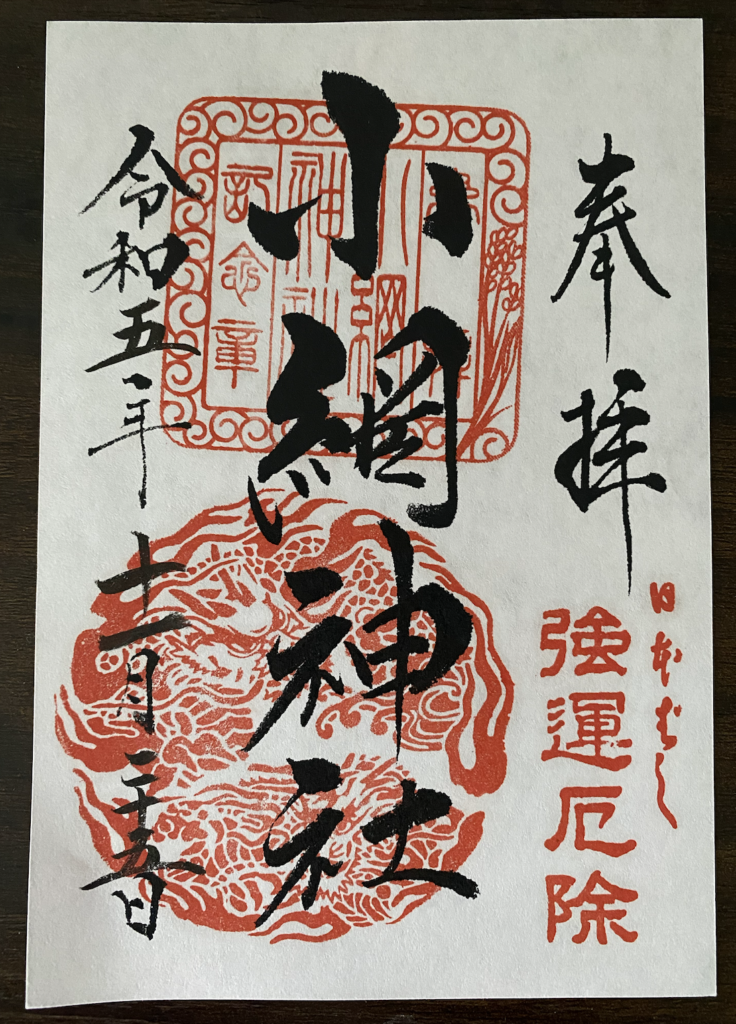 奉拝
日本ばし
強運厄除
小網神社
小網
神社
記念章
令和五年十一月二十五日